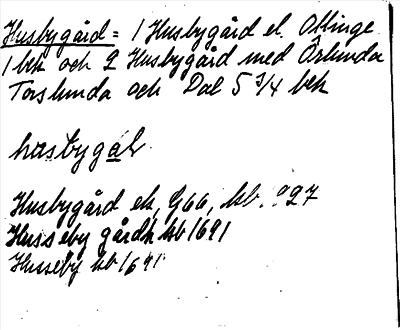 Husbygård = 1 Husbygård el. Ottinge
1 bek och 2 Husbygård med Örlunda
Torslunda och Dal 5 3/4 bek
husbygå
Husbygård ek, G66, kb.
Husseby gård kb 1691
Husseby kb 1691